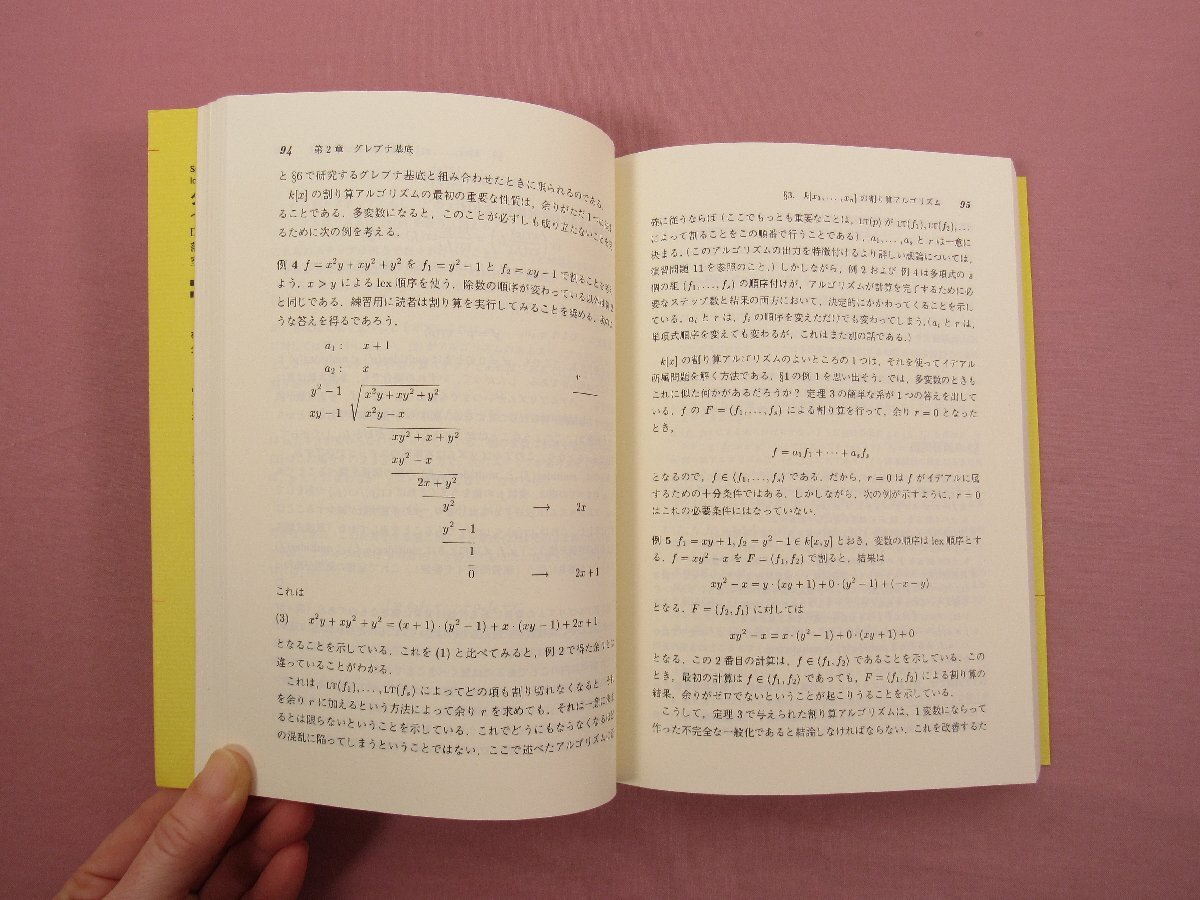 94 第2章 グレブナ基底
と §6で研究するグレブナ基底と組み合わせたときに限られるのである.
k[x] の割り算アルゴリズムの最初の重要な性質は, 余りがただ1つに
ることである. 多変数になると, このことが必ずしも成り立たないことを
るために次の例を考える.
例 4 f = x²y + xy² + y² を f₁ = y² − 1 と f₂ = xy − 1 で割ることを
よう. x > y による lex 順序を使う. 除数の順序が変わっている以外は
と同じである. 練習用に読者は割り算を実行してみることを奨める.
うな答えを得るであろう.
a₁ : x + 1
a₂ : x r
y² − 1 √ x²y + xy² + y²
xy − 1 x²y − x
xy² + x + y²
xy² − x
2x + y²
y² → 2x
y² − 1
1
0 → 2x + 1
これは
(3) x²y + xy² + y² = (x + 1) · (y² − 1) + x · (xy − 1) + 2x + 1
となることを示している. これを (1) と比べてみると, 例 2 で得た余り
違っていることがわかる.
これは, LT(f₁), . . . , LT(fₛ) によってどの項も割り切れなくなると
を余り r に加えるという方法によって余り r を求めても, それは一意に
るとは限らないということを示している. これでどうにもならなくなる
の混乱に陥ってしまうということではない. ここで述べたアルゴリズムに
§3. k[x₁, . . . , xₙ] の割り算アルゴリズム 95
確に従うならば (ここでもっとも重要なことは, LT(p) が LT(f₁), LT(f₂), . . .
によって割ることをこの順番で行うことである), a₁, . . . , aₛ と r は一意に
決まる. (このアルゴリズムの出力を特徴付けるより詳しい議論については,
演習問題 11 を参照のこと.) しかしながら, 例 2 および 例 4 は多項式の s
個の組 (f₁, . . . , fₛ) の順序付けが, アルゴリズムが計算を完了するために必
要なステップ数と結果の両方において, 決定的にかかわってくることを示し
ている. aᵢ と r は, fᵢ の順序を変えただけでも変わってしまう. (aᵢ と r は,
単項式順序を変えても変わるが, これはまた別の話である.)
k[x] の割り算アルゴリズムのよいところの 1 つは, それを使ってイデアル
所属問題を解く方法である. §1 の例 1 を思い出そう. では, 多変数のときも
これに似た何かがあるだろうか? 定理 3 の簡単な系が 1 つの答えを出して
いる. f の F = (f₁, . . . , fₛ) による割り算を行って, 余り r = 0 となった
とき,
f = a₁f₁ + · · · + aₛfₛ
となるので, f ∈ ⟨f₁, . . . , fₛ⟩ である. だから, r = 0 は f がイデアルに属
するための十分条件ではある. しかしながら, 次の例が示すように, r = 0
はこれの必要条件にはなっていない.
例 5 f₁ = xy + 1, f₂ = y² − 1 ∈ k[x, y] とおき, 変数の順序は lex 順序とす
る. f = xy² − x を F = (f₁, f₂) で割ると, 結果は
xy² − x = y · (xy + 1) + 0 · (y² − 1) + (−x − y)
となる. F = (f₂, f₁) に対しては
xy² − x = x · (y² − 1) + 0 · (xy + 1) + 0
となる. この 2 番目の計算は, f ∈ ⟨f₁, f₂⟩ であることを示している. この
とき, 最初の計算は f ∈ ⟨f₁, f₂⟩ であっても, F = (f₁, f₂) による割り算の
結果, 余りがゼロでないということが起こりうることを示している.
こうして, 定理 3 で与えられた割り算アルゴリズムは, 1 変数にならって
作った不完全な一般化であると結論しなければならない. これを改善するた